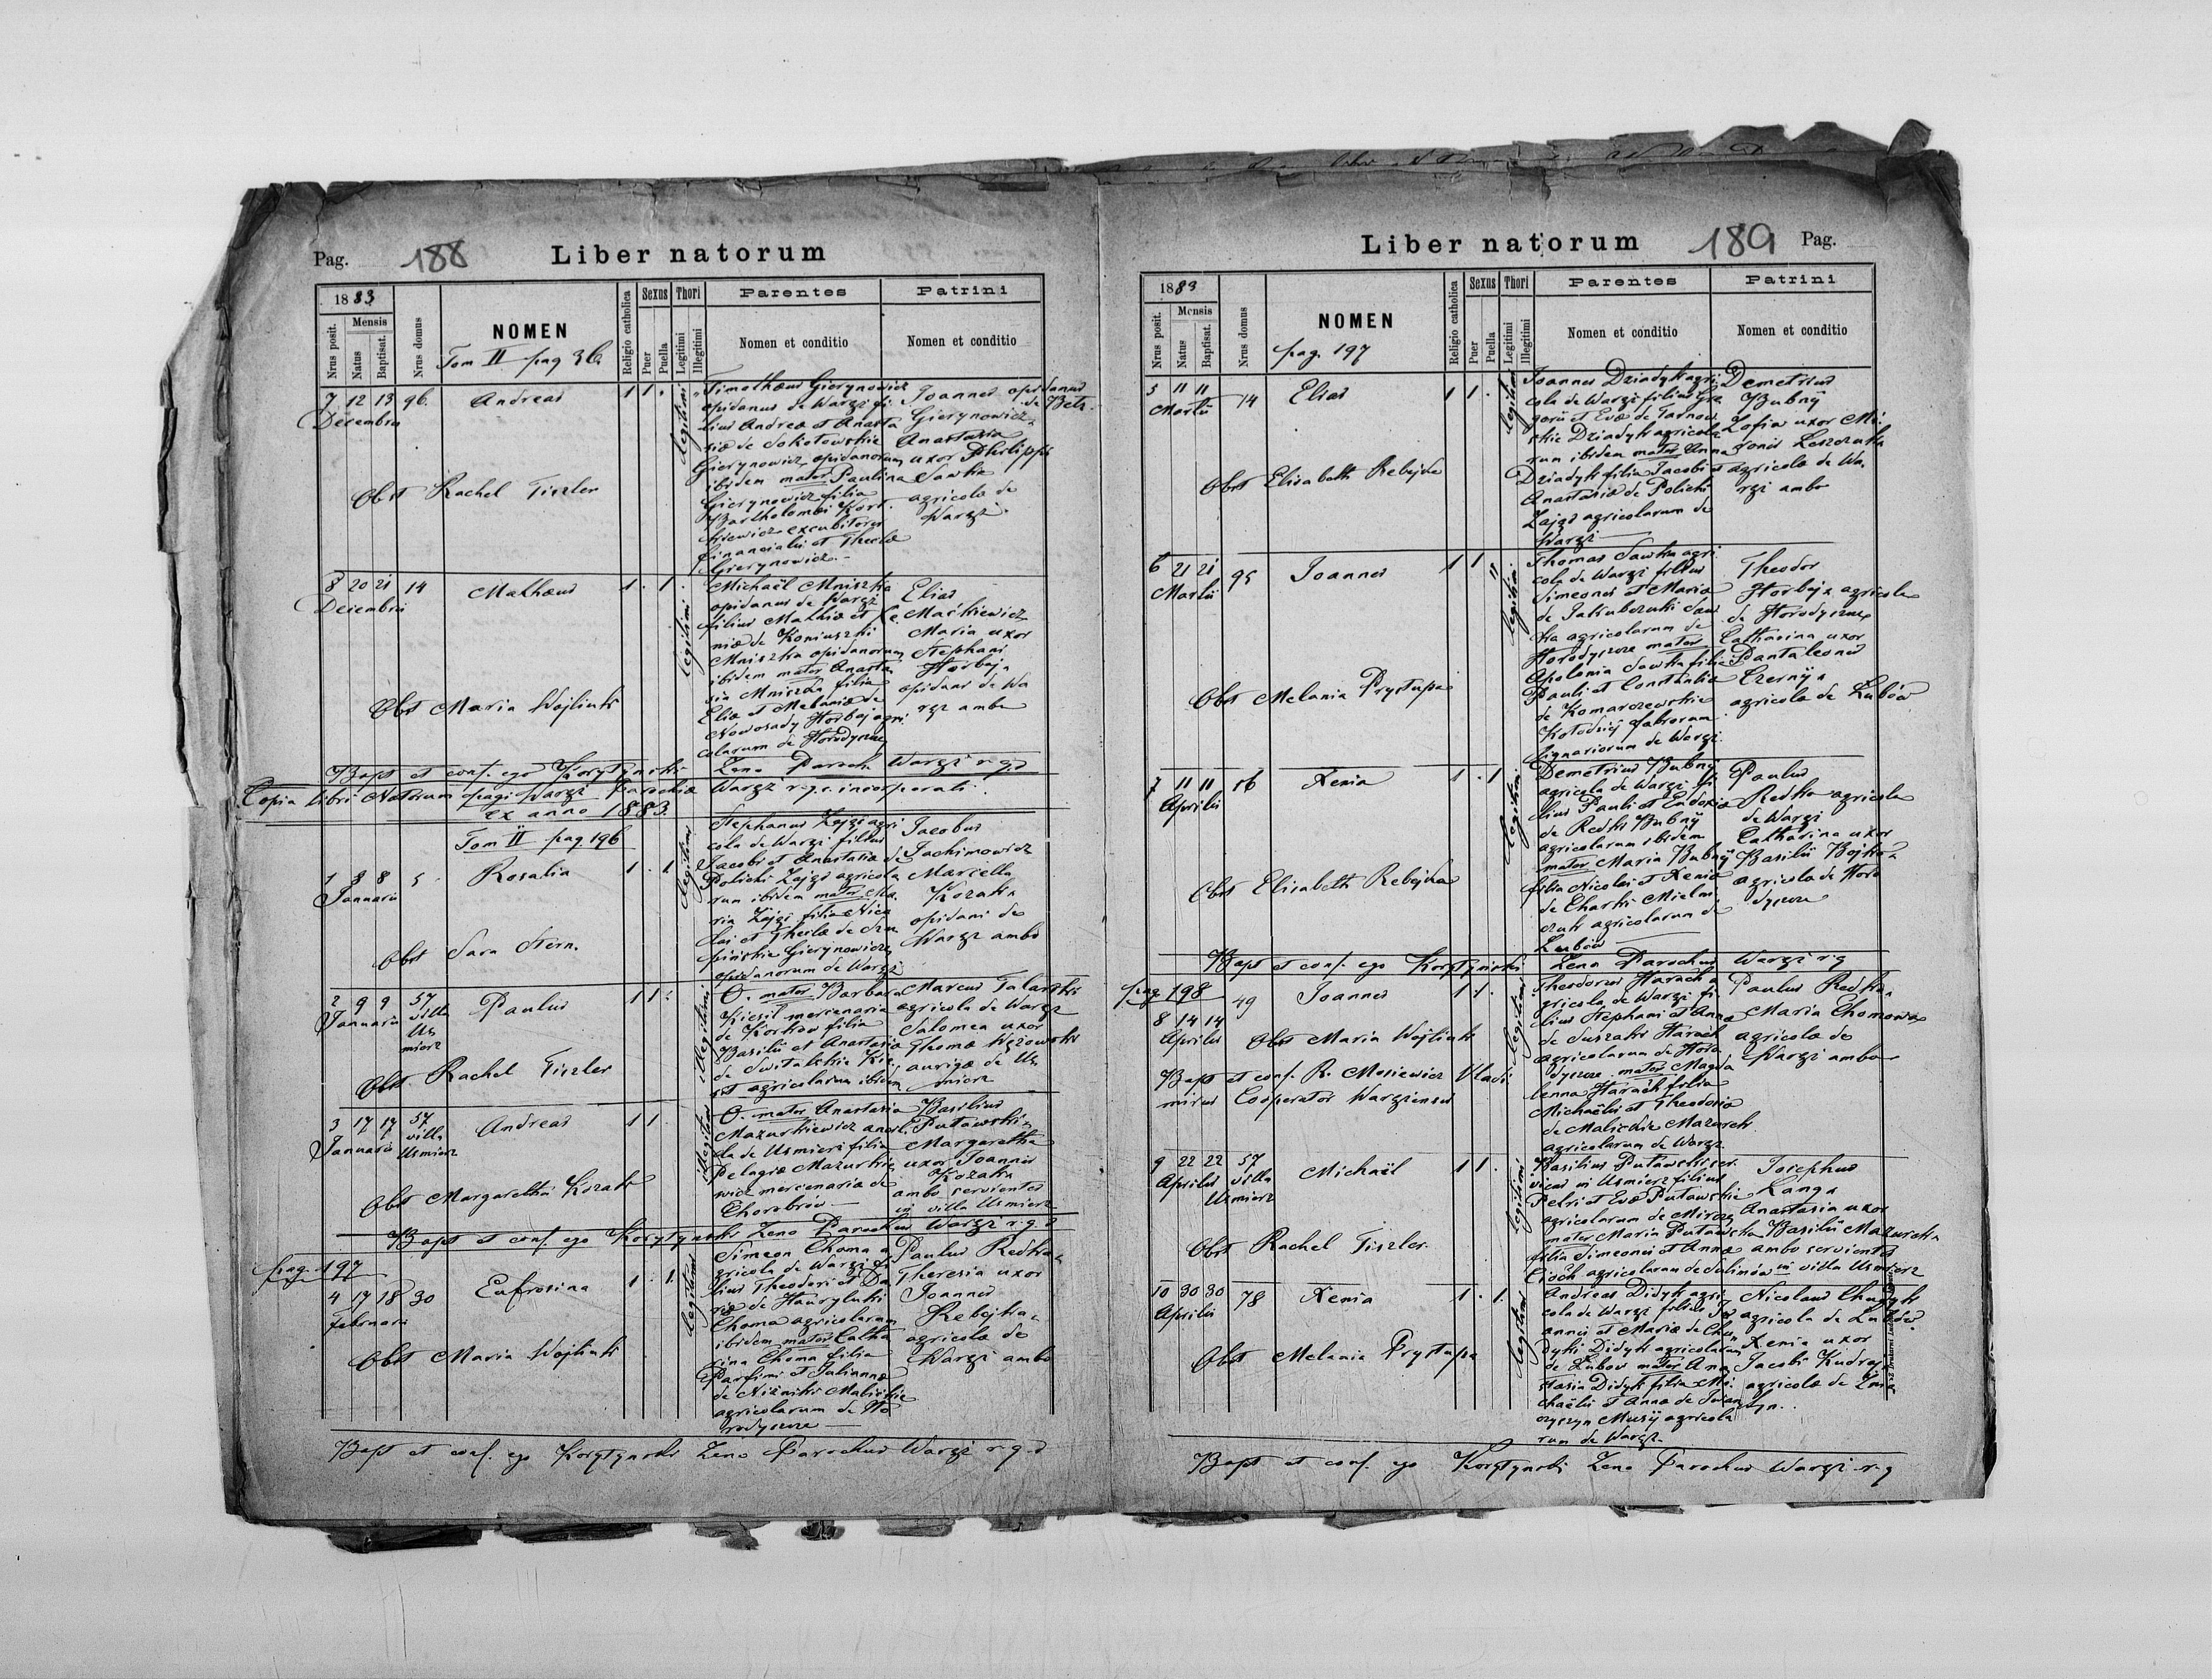 Pag. 188 Liber natorum
1883
Nrus posit.
Mensis
Natus
Baptisat.
Nrus domus
NOMEN
Tom II pag 36
Religio catholica
Sexus
Puer
Puella
Thori
Legitimi
Illegitimi
Parentes
Nomen et conditio
Patrini
Nomen et conditio
7 12 13 96. Andreas 1 1 .
Decembris
Obst Rachel Tiszler
legitimi
Timothæus Gierynowicz
opidanus de Waręż fi
lius Andreæ et Anasta
siæ de Sokołowskie
Gierynowicz opidanorum
ibidem mater Paulina
Gierynowicz filia
Bartholomæi
excubitoris
financialis et Theclæ
Gierynowicz.
Joannes opidanus
de Bełz
Gierynowicz
Anastasia
uxor Philippi
Sawka
agricolæ de
Waręż.
8 20 21 14 Mathæus 1 . 1
Decembris
Obst Maria Wojliuk
legitimi
Michaël Mniszka
opidanus de Waręż
filius Mathiæ et Xe
niæ de Koniuszki
Mniszka opidanorum
ibidem mater Anasta
sia Mniszka filia
Eliæ et Melaniæ de
Nowosady Horbaj agri
colarum de Horodyszcze
Elias
Maćkiewicz
Maria uxor
Stephani
Horbaja
opidani de Wa
ręż ambo
Bapt et conf. ego Korytyński Zeno Paroch Waręż r g
Copia Libri Natorum pagi Waręż Parochiæ Waręż r.g.c. incorporati.
ex anno 1883.
Tom II pag 196
1 8 8 5 Rosalia 1 . 1
Januarii
Obst Sara Stern.
legitimi
Stephanus Zając agri
cola de Waręż filius
Jacobi et Anastasiæ de
Polichi Zając agricola
rum ibidem mater Ma
ria Zając filia Nico
lai et Theclæ de
Gierynowicz
opidanorum de Waręż
Jacobus
Jachimowicz
Marcella
Kozak
opidani de
Waręż ambo
2 9 9 57 Paulus 1 1 .
Januarii villa
Us
mierz
Obst. Rachel Tiszler
illegitimi
O. mater Barbara
Kiezil mercenaria
de Korkow filia
Basilii et Anastasiæ
de Świtalskie
agricolarum ibidem
Marcus
agricola de Waręż
Salomea uxor
Thomæ
aurigæ de Us
mierz
3 17 17 57 Andreas 1 1
Januarii villa
Usmierz
Obst Margaretha Kozak
illegitimi
O. mater Anastasia
Mazurkiewicz ancil
la de Usmierz filia
Pelagiæ Mazurkie
wicz mercenaria de
Chorobrów
Basilius
Puławski
Margaretha
uxor Joannis
Kozak
ambo servientes
in villa Usmierz
Bapt et conf ego Korytyński Zeno Parochus Waręż r.g.
pag. 197
4 17 18 30 Eufrosina 1 . 1.
Februarii
Obst Maria Wojliuk
legitimi
Simeon Choma a
gricola de Waręż fi
lius Theodori et Da
riæ de Hawryluki
Choma agricolarum
ibidem mater Catha
rina Choma filia
Parfimi et Juliannæ
de Niżniki Malickie
agricolarum de Ho
rodyszcze
Paulus Redka
Theresia uxor
Joannis
Rebejka
agricolæ de
Waręż ambo
Bapt et conf. ego Korytynski Zeno Parochus Waręż r.g.
Liber natorum 189 Pag.
1883
Nrus posit.
Mensis
Natus
Baptisat.
Nrus domus
NOMEN
pag. 197
Religio catholica
Sexus
Puer
Puella
Thori
Legitimi
Illegitimi
Parentes
Nomen et conditio
Patrini
Nomen et conditio
5 11 11 14 Elias 1 1 .
Martii
Obst Elisabeth Rebejka
legitimi
Joannes Dziadyk agri
cola de Waręż filius Gre
gorii et Evæ de Tarnow
skie Dziadyk agricola
rum ibidem mater Anna
Dziadyk filia Jacobi et
Anastasiæ de Polichi
Zając agricolarum de
Waręż
Demetrius
Bubnÿ
Zofia uxor
Leszczuka
agricolæ de Wa
ręż ambo
6 21 21 95 Joannes 1 1
Martii
Obst Melania Prystupa
legitimi
Thomas Sawka agri
cola de Waręż filius
Simeonis et Mariæ
de Jakubczuki Saw
ka agricolarum de
Horodyszcze mater
Apolonia Sawka filia
Pauli et Constantiæ
de Komarzewskie
Kołodziej fabrorum
lignariorum de Waręż.
Theodor
Horbaja agricola
de Horodyszcze
Catharina uxor
Pantaleonis
Czernÿa
agricolæ de Lubów
7 11 11 16 Xenia 1 . 1
Aprilis
Obst Elisabeth Rebejka
legitimi
Demetrius Bubnÿ
agricola de Waręż fi
lius Pauli et Eudoxiæ
de Redki Bubnÿ
agricolarum ibidem
mater Maria Bubnÿ
filia Nicolai et Xeniæ
de Charki Mielni
czuk agricolarum de
Lubów
Paulus
Redka agricola
de Waręż
Catharina uxor
Basilii Bojko
agricolæ de Horo
dyszcze
Bapt et conf. ego Korytyński Zeno Parochus Waręż r g
pag 198
8 14 14 49 Joannes 1 1 .
Aprilis Obst Maria Wojliuk
Bapt et conf. R. Mosiewicz Vladi
mirus Cooperator Warężensis
legitimi
Theodorus Harach a
gricola de Waręż fi
lius Stephani et Annæ
de Suszaki Harach
agricolarum de Horo
dyszcze mater Magda
lenna Harach filia
Michaëlis et Theodosiæ
de Malickie Mazurek
agricolarum de Waręż
Paulus Redka
Maria Chomowa
agricolæ de
Waręż ambo
9 22 22 57 Michaël 1 1 .
Aprilis villa
Usmierz
Obst Rachel Tiszler.
legitimi
Basilius Puławski ser
viens in Usmierz filius
Petri et Evæ Puławskie
agricolarum de
mater Maria Puławska
filia Simeonis et Annæ
Cioch agricolarum de Sulimów
Josephus
Langa
Anastasia uxor
Basilii Mazurek
ambo servientes
in villa Usmierz
10 30 30 78 Xenia 1 . 1.
Aprilis
Obst Melania Prystupa
legitimi
Andreas Didyk agri
cola de Waręż filius Jo
annis et Mariæ de Chu
dyki Didyk agricolarum
de Lubow mater Ana
stasia Didyk filia Mi
chaëlis et Annæ de Iwan
czyszyn Musij agricola
rum de Waręż.
Nicolaus Chudyk
agricola de Lubów
Xenia uxor
Jacobi Kudraj
agricolæ de
Bapt et conf. ego Korytynski Zeno Parochus Waręż r. g